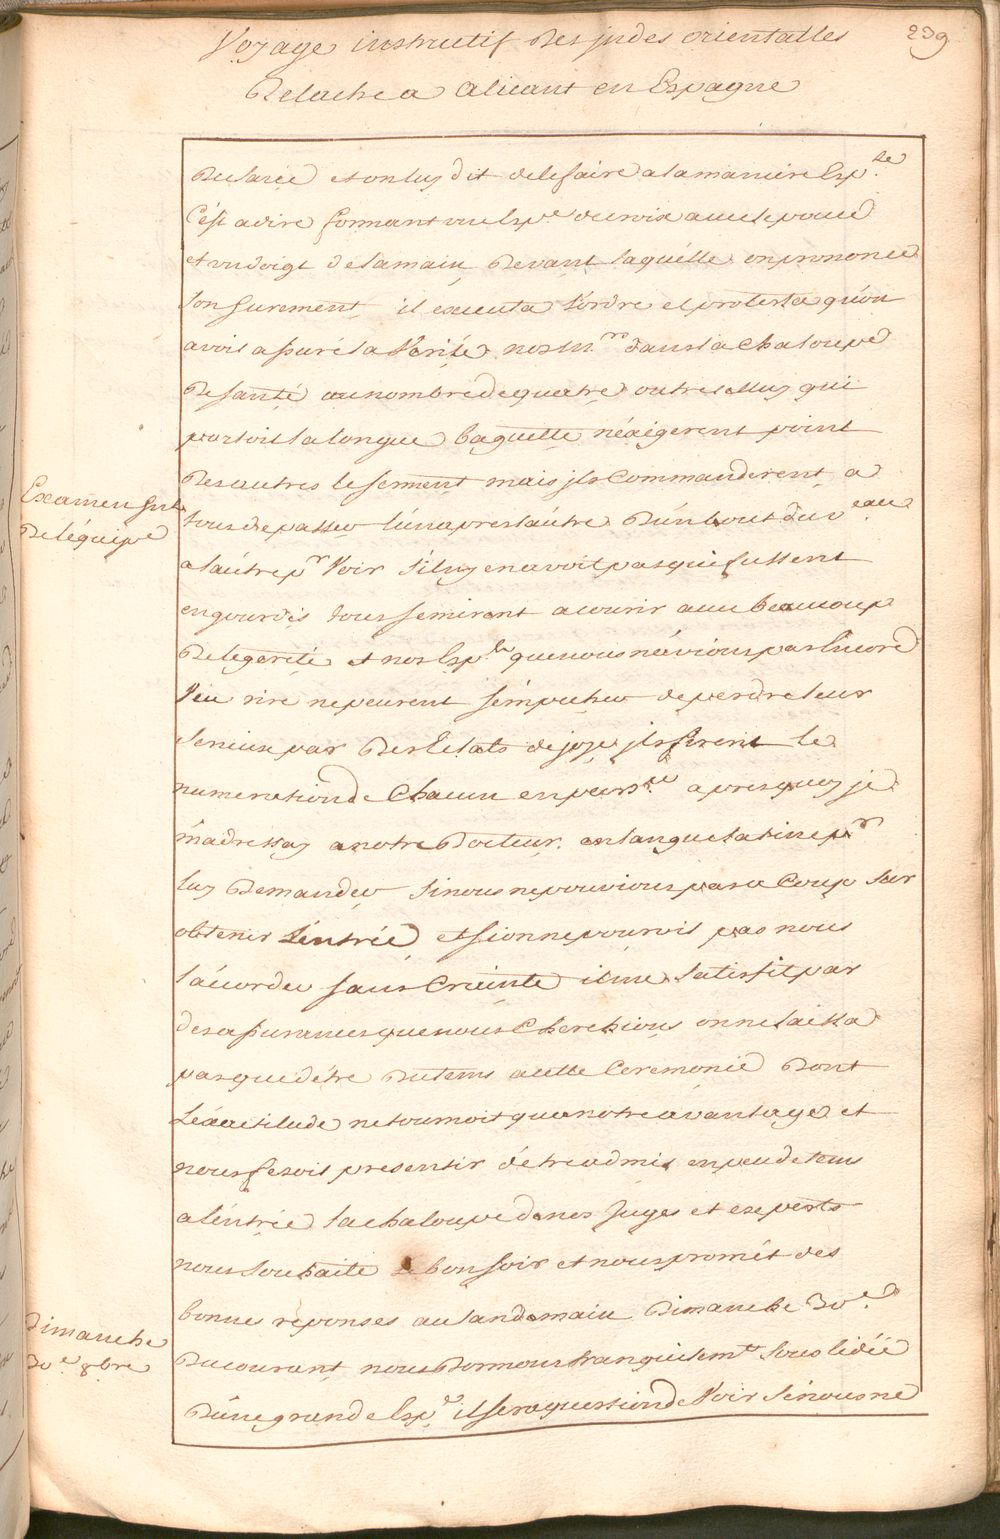 Voyage instructif des jndes orientalles
239
Relache a alicant en Espagne
declarée et on luy dit de le faire a la maniere Esp.le
C'est a dire formant une Esp.e de croix avec le pouce
et un doigt de la main devant laquélle on prononce
son surement il executa l'ordre et protesta qu'on
avoit assuré la Verité nos M.rs dans la chaloupe
de santé au nombre de quatre outre celluy qui
portoit la longue baguette n'éxigerent point
des autres le serment mais jls commanderent a
Examen sur
de l'équipe
tous de passer l'un apres l'autre d'un bout du v.eau
a l'autre p.r Voir s'il n'y en avoit pas qui fussent
engourdis tous se mirent a courir avec beaucoup
de legereté et nos Esp.ls que nous n'avions pas Encore
Veu rire ne peurent s'émpecher de perdre leur
serieux par des Eclats de joye jls firent le
numeration de chacun en pers.ne apres quoy je
m'adressay a notre Docteur en langue latine p.r
luy demander si nous ne pouvions pas a Coup sur
obtenir L'entrée et si on ne pourroit pas nous
l'acorder sans Crainte il me satisfit par
des assurances que nous Cherchions on ne laissa
pas que d'étre du tems a cette Ceremonie dont
L'éxactitude ne tournoit qu'a notre avantage et
nous fesoit presentir d'étre admis en peu de tems
a l'éntrée la chaloupe de nos juges et experts
nous souhaite le bon soir et nous promét des
bonnes réponses au landemain Dimanche 30.e
Dimanche
30.e 8bre
du courant nous dormons tranquilem.t sous l'idée
d'une grande Esp.ce il sera question de Voir si nous ne